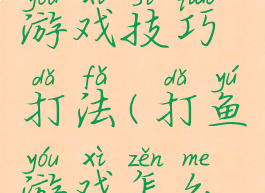 yóu xì jì qiǎo
游戏技巧
dǎ fǎ dǎ yú
打法(打鱼
yóu xì zěn me
游戏怎么